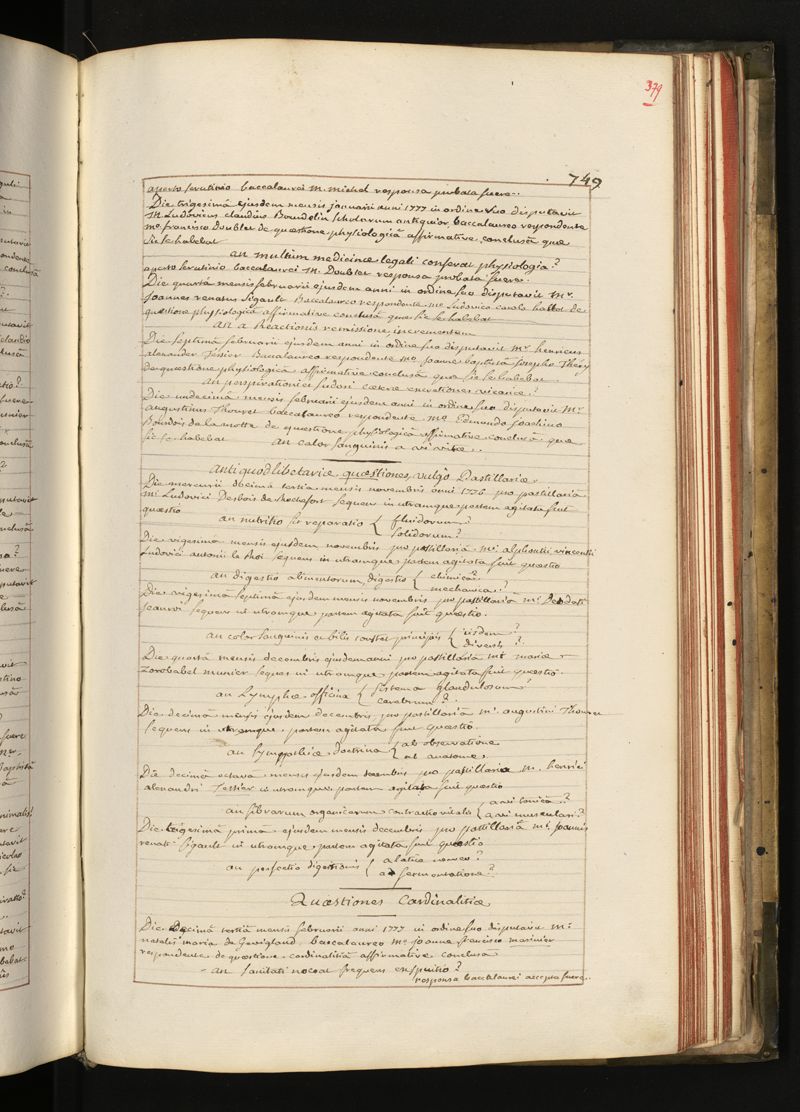 379
749
aperto scrutinio baccalaurei M. michel responsa probata fuere.
Die trigesimâ ejusdem mensis januarii anni 1777 in ordine suo disputavit
M. Ludovicus claudius Bourdelin scholarum antiquior, baccalaureo respondente
mo. francisco Doublet de quæstione physiologicâ affirmative conclusâ quæ
sic se habebat
an multum medicinæ legali conferat physiologia?
aperto scrutinio baccalaurei M. Doublet responsa probata fuere.
Die quartâ mensis februarii ejusdem anni in ordine suo disputavit Mr.
Joannes renatus Sigault Baccalaureo respondente mo Ludovico carolo hallot de
quæstione physiologicâ affirmative conclusâ quæ sic se habebat
an a Reactionis remissione, incrementum
Die septimâ februarii ejusdem anni in ordine suo disputavit Mr. henricus
alexander Tessier Baccalaureo respondente mo Joanne baptistâ Josepho Thery
de quæstione physiologicâ affirmative conclusâ quæ sic se habebat
an perspirationi et sudori cæteræ excretiones vicariæ?
Die undecimâ mensis februarii ejusdem anni in ordine suo disputavit Mr.
augustinus Thouret baccalaureo respondente mo Edmundo Joachimo
Bourdois de la motte de quæstione physiologicâ affirmative conclusâ quæ
sic se habebat an calor sanguinis a vi vitæ.
antiquodlibetariæ quæstiones, vulgò Pastillariæ.
Die mercurii decimâ tertiâ mensis novembris anni 1776 pro pastillariâ
Mi. Ludovici Desbois de Rochefort sequens in utramque partem agitata fuit
quæstio
an nutritio sit reparatio { fluidorum?
solidorum?
Die vigesimâ mensis ejusdem novembris pro pastillariâ Mi. alphontii vincentii
Ludovici antonii le Roi sequens in utramque partem agitata fuit quæstio
an digestio alimentorum, digestio { chimica?
mechanica?
Die vigesimâ septimâ ejusdem mensis novembris pro pastillariâ Mi. Deodati
Jeanroi sequens in utramque partem agitata fuit quæstio.
an color sanguinis et bilis constet principiis { iisdem?
diversis?
Die quartâ mensis decembris ejusdem anni pro pastillariâ Mi mariæ
zorobabel munier sequens in utramque partem agitata fuit quæstio.
an Lymphæ officina { sistema glandulosum
cavorum?
Die decimâ mensis ejusdem decembris pro pastillariâ Mi. augustini Thouret
sequens in utramque partem agitata fuit quæstio
an sympathiæ doctrina { ab observatione
ab anatome.
Die decimâ octavâ mensis ejusdem decembris pro pastillariâ M. henrici
alexandri Tessier in utramque partem agitata fuit quæstio
an fibrarum organicarum contractio vitalis { a vi tonicâ?
a vi musculari?
Die trigesimâ primâ ejusdem mensis decembris pro pastillariâ Mi. Joannis
renati Sigault in utramque partem agitata fuit quæstio
an perfectio digestionis { a lacteo
a fermentatione?
Quæstiones Cardinalitiæ
Die Decimâ tertiâ mensis februarii anni 1777 in ordine suo disputavit Mr.
natalis maria de Gevigland, baccalaureo mo Joanne francisco marinier
respondente de quæstione cardinalitiâ affirmative conclusâ
an sanitati noceat frequens exspuitio?
responsa baccalaurei accepta fuere.